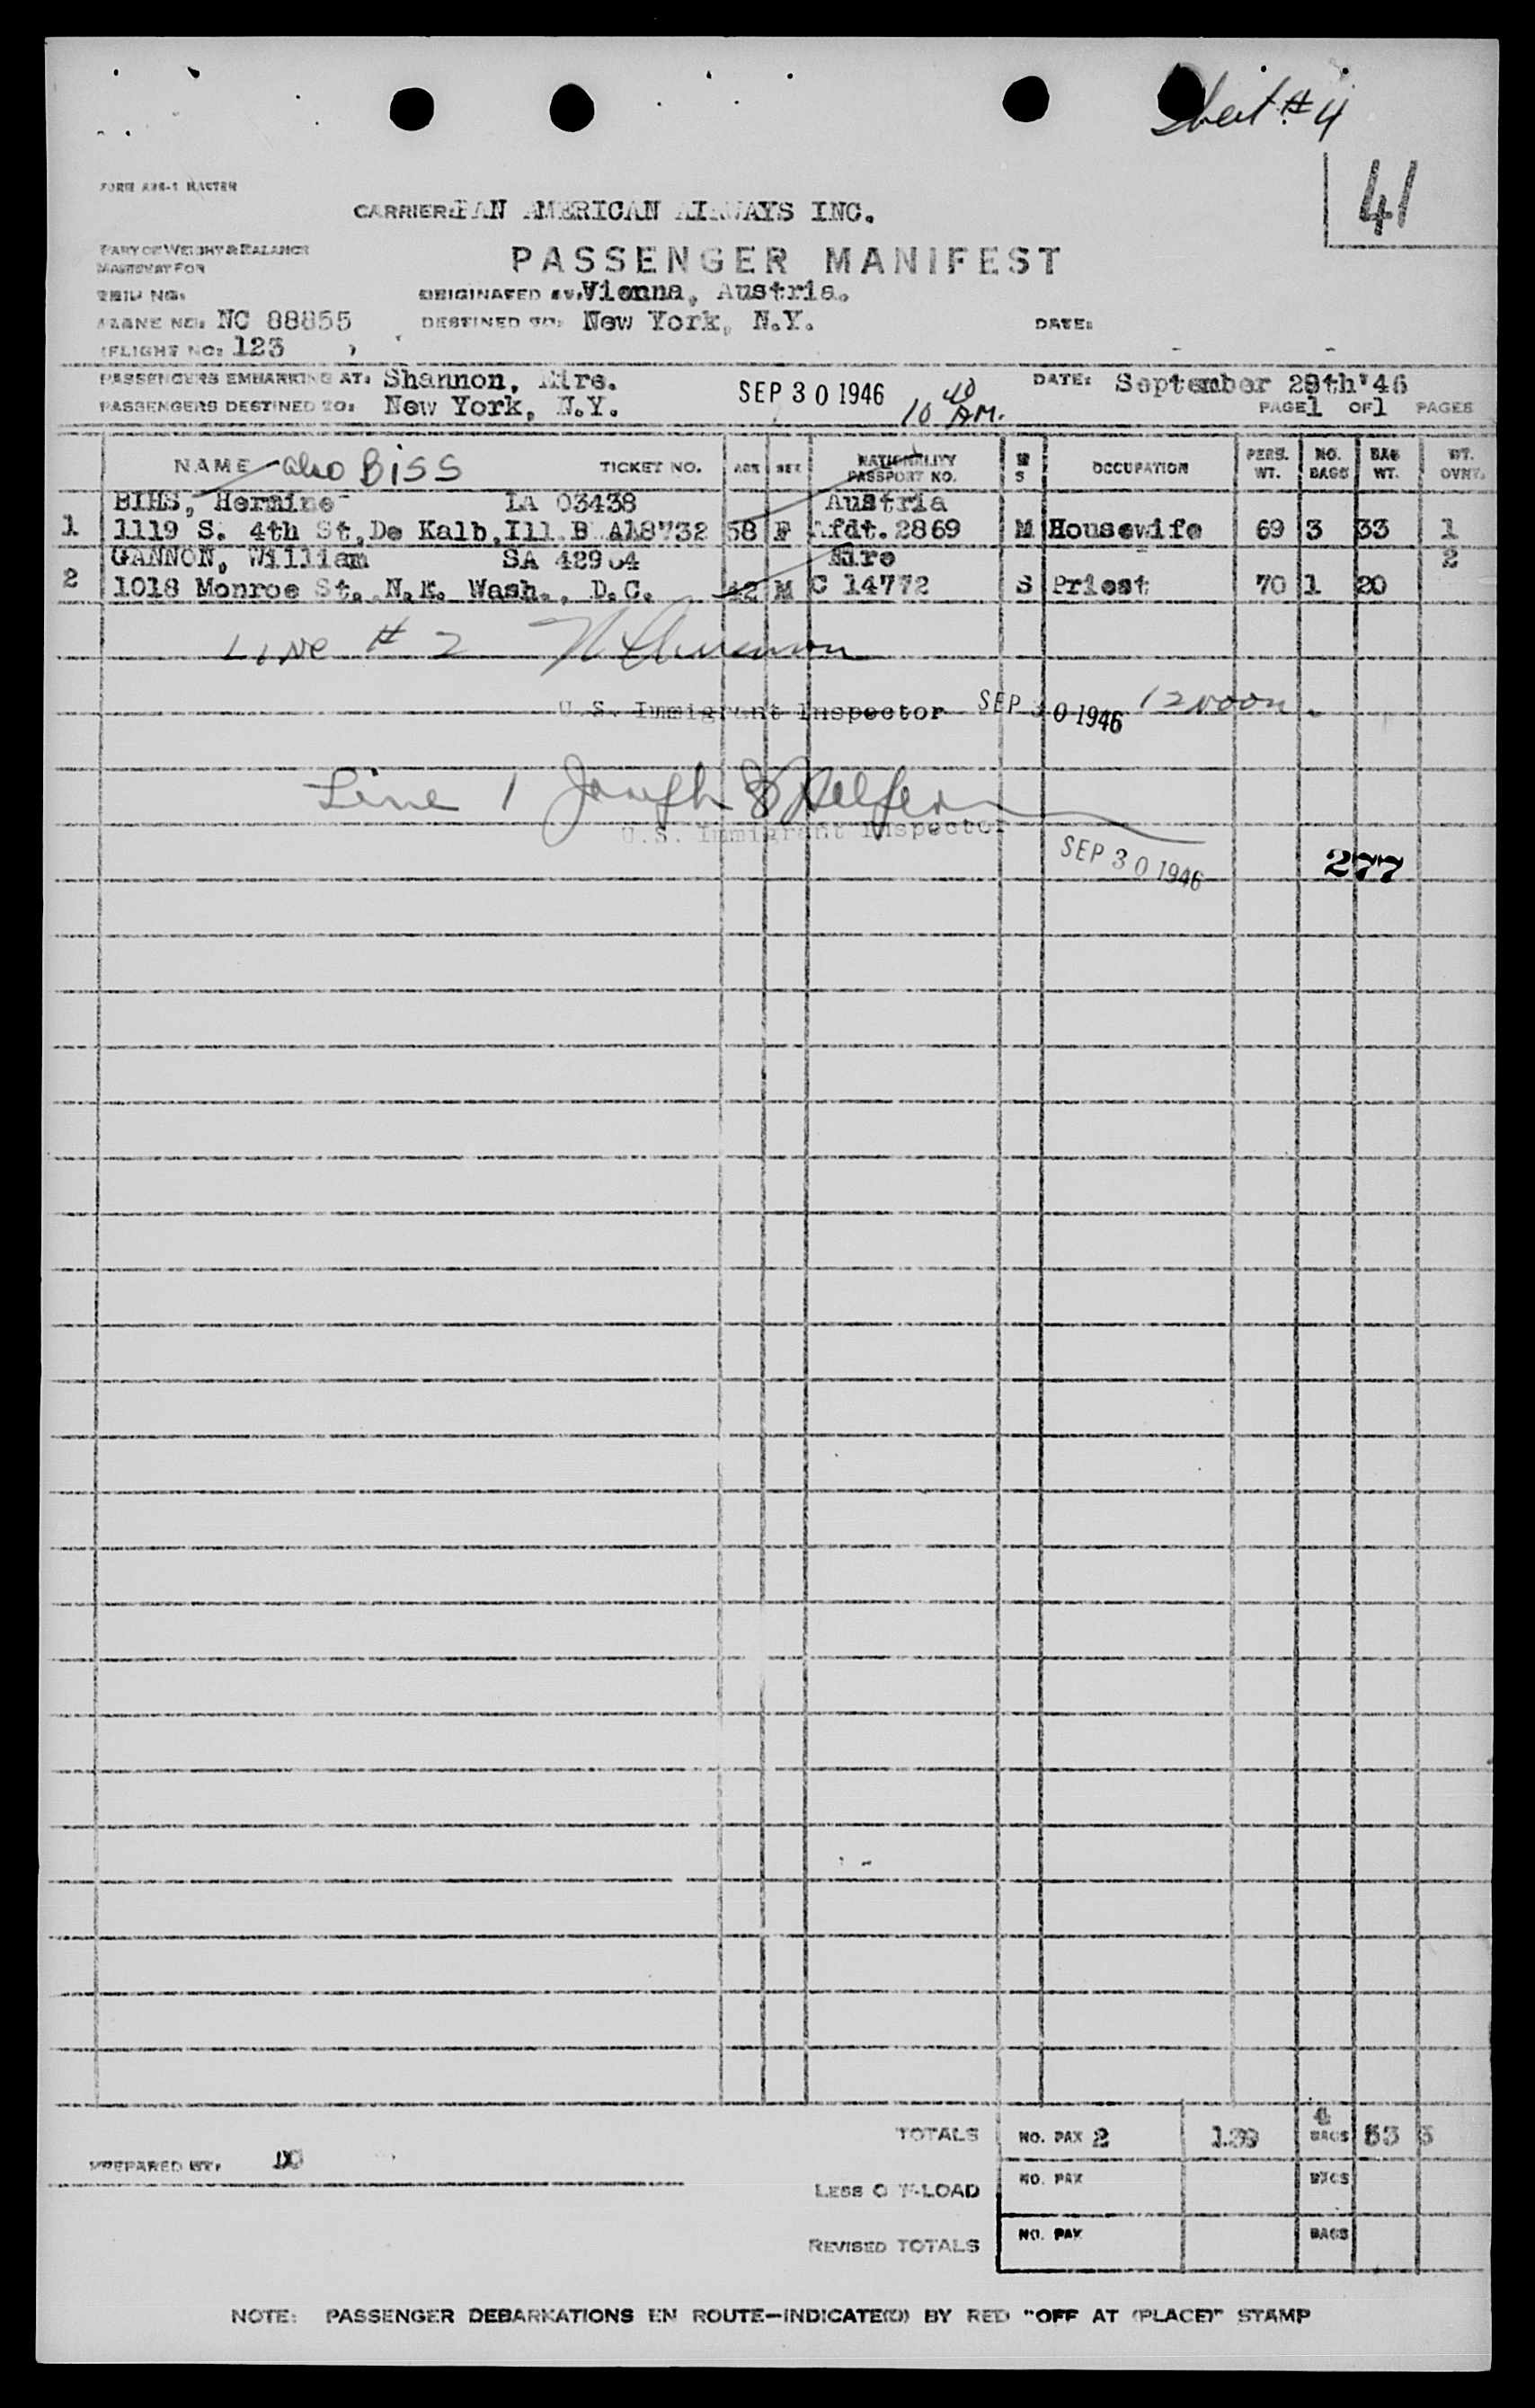 Sheet #4
41
FORM AHS-1 MASTER
CARRIER: PAN AMERICAN AIRWAYS INC.
PART OF WEIGHT & BALANCE
MANIFEST FOR
PASSENGER MANIFEST
TRIP NO.
ORIGINATED AT: Vienna, Austria.
PLANE NO: NC 88855
DESTINED TO: New York, N.Y.
DATE:
FLIGHT NO: 123
PASSENGERS EMBARKING AT: Shannon, Eire.
DATE: September 29th'46
SEP 30 1946 10 40 AM.
PASSENGERS DESTINED TO: New York, N.Y.
PAGE 1 OF 1 PAGES
NAME also Biss TICKET NO. AGE SEX NATIONALITY PASSPORT NO. M S OCCUPATION PERS. WT. NO. BAGS BAG WT. WT. OVNT.
BIHS, Hermine LA 03438 Austria
1 1119 S. 4th St, De Kalb, Ill. B 58 F Afdt. 2869 M Housewife 69 3 33 1
GANNON, William SA 42904 Eire 2
2 1018 Monroe St. N.E. Wash., D.C. 42 M C 14772 S Priest 70 1 20
Line # 2
U.S. Immigrant Inspector SEP 30 1946 12 noon.
Line 1 Joseph
U.S. Immigrant Inspector
SEP 30 1946
277
TOTALS NO. PAX 2 139 4 BAGS 53 3
PREPARED BY:
LESS OFF-LOAD NO. PAX BAGS
REVISED TOTALS NO. PAX BAGS
NOTE: PASSENGER DEBARKATIONS EN ROUTE—INDICATE(D) BY RED "OFF AT (PLACE)" STAMP